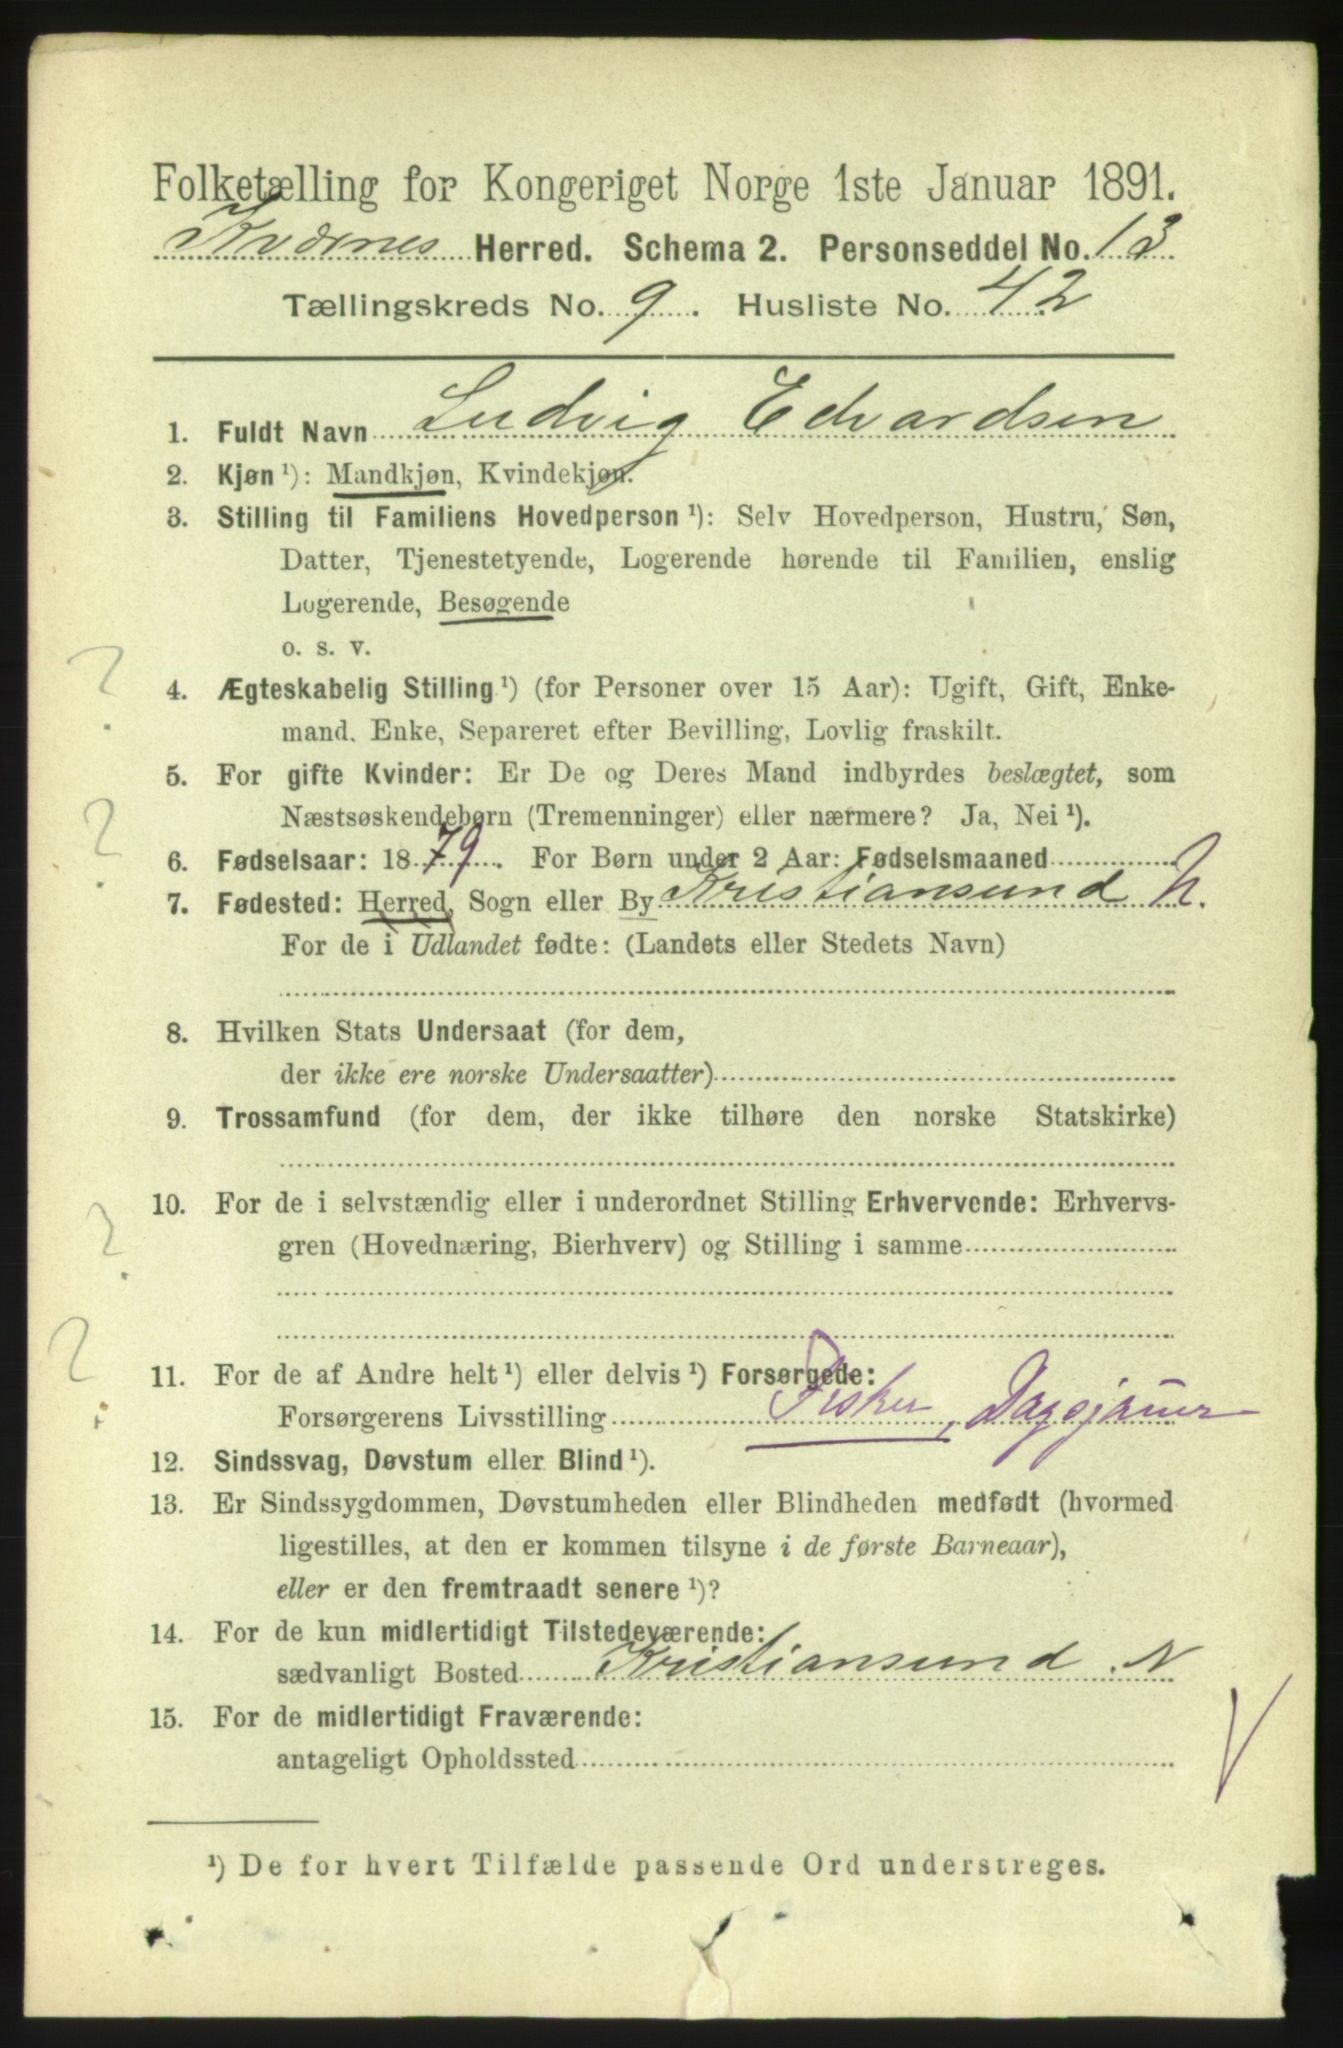 Folketælling for Kongeriget Norge 1ste Januar 1891.
Kvernes Herred. Schema 2. Personseddel No. 13
Tællingskreds No. 9. Husliste No. 42
1. Fuldt Navn Ludvig Edvardsen
2. Kjøn ¹): Mandkjøn, Kvindekjøn.
3. Stilling til Familiens Hovedperson ¹): Selv Hovedperson, Hustru, Søn,
Datter, Tjenestetyende, Logerende hørende til Familien, enslig
Logerende, Besøgende
o. s. v.
?
4. Ægteskabelig Stilling ¹) (for Personer over 15 Aar): Ugift, Gift, Enke-
mand, Enke, Separeret efter Bevilling, Lovlig fraskilt.
5. For gifte Kvinder: Er De og Deres Mand indbyrdes beslægtet, som
?
Næstsøskendebørn (Tremenninger) eller nærmere? Ja, Nei ¹).
6. Fødselsaar: 1879. For Børn under 2 Aar: Fødselsmaaned
7. Fødested: Herred, Sogn eller By Kristiansund N.
For de i Udlandet fødte: (Landets eller Stedets Navn)
8. Hvilken Stats Undersaat (for dem,
der ikke ere norske Undersaatter)
9. Trossamfund (for dem, der ikke tilhøre den norske Statskirke)
10. For de i selvstændig eller i underordnet Stilling Erhvervende: Erhvervs-
?
gren (Hovednæring, Bierhverv) og Stilling i samme
?
11. For de af Andre helt ¹) eller delvis ¹) Forsørgede:
Forsørgerens Livsstilling Fisker, Dagsjauer
12. Sindssvag, Døvstum eller Blind ¹).
13. Er Sindssygdommen, Døvstumheden eller Blindheden medfødt (hvormed
ligestilles, at den er kommen tilsyne i de første Barneaar),
eller er den fremtraadt senere ¹)?
14. For de kun midlertidigt Tilstedeværende:
sædvanligt Bosted Kristiansund N
15. For de midlertidigt Fraværende:
antageligt Opholdssted
¹) De for hvert Tilfælde passende Ord understreges.